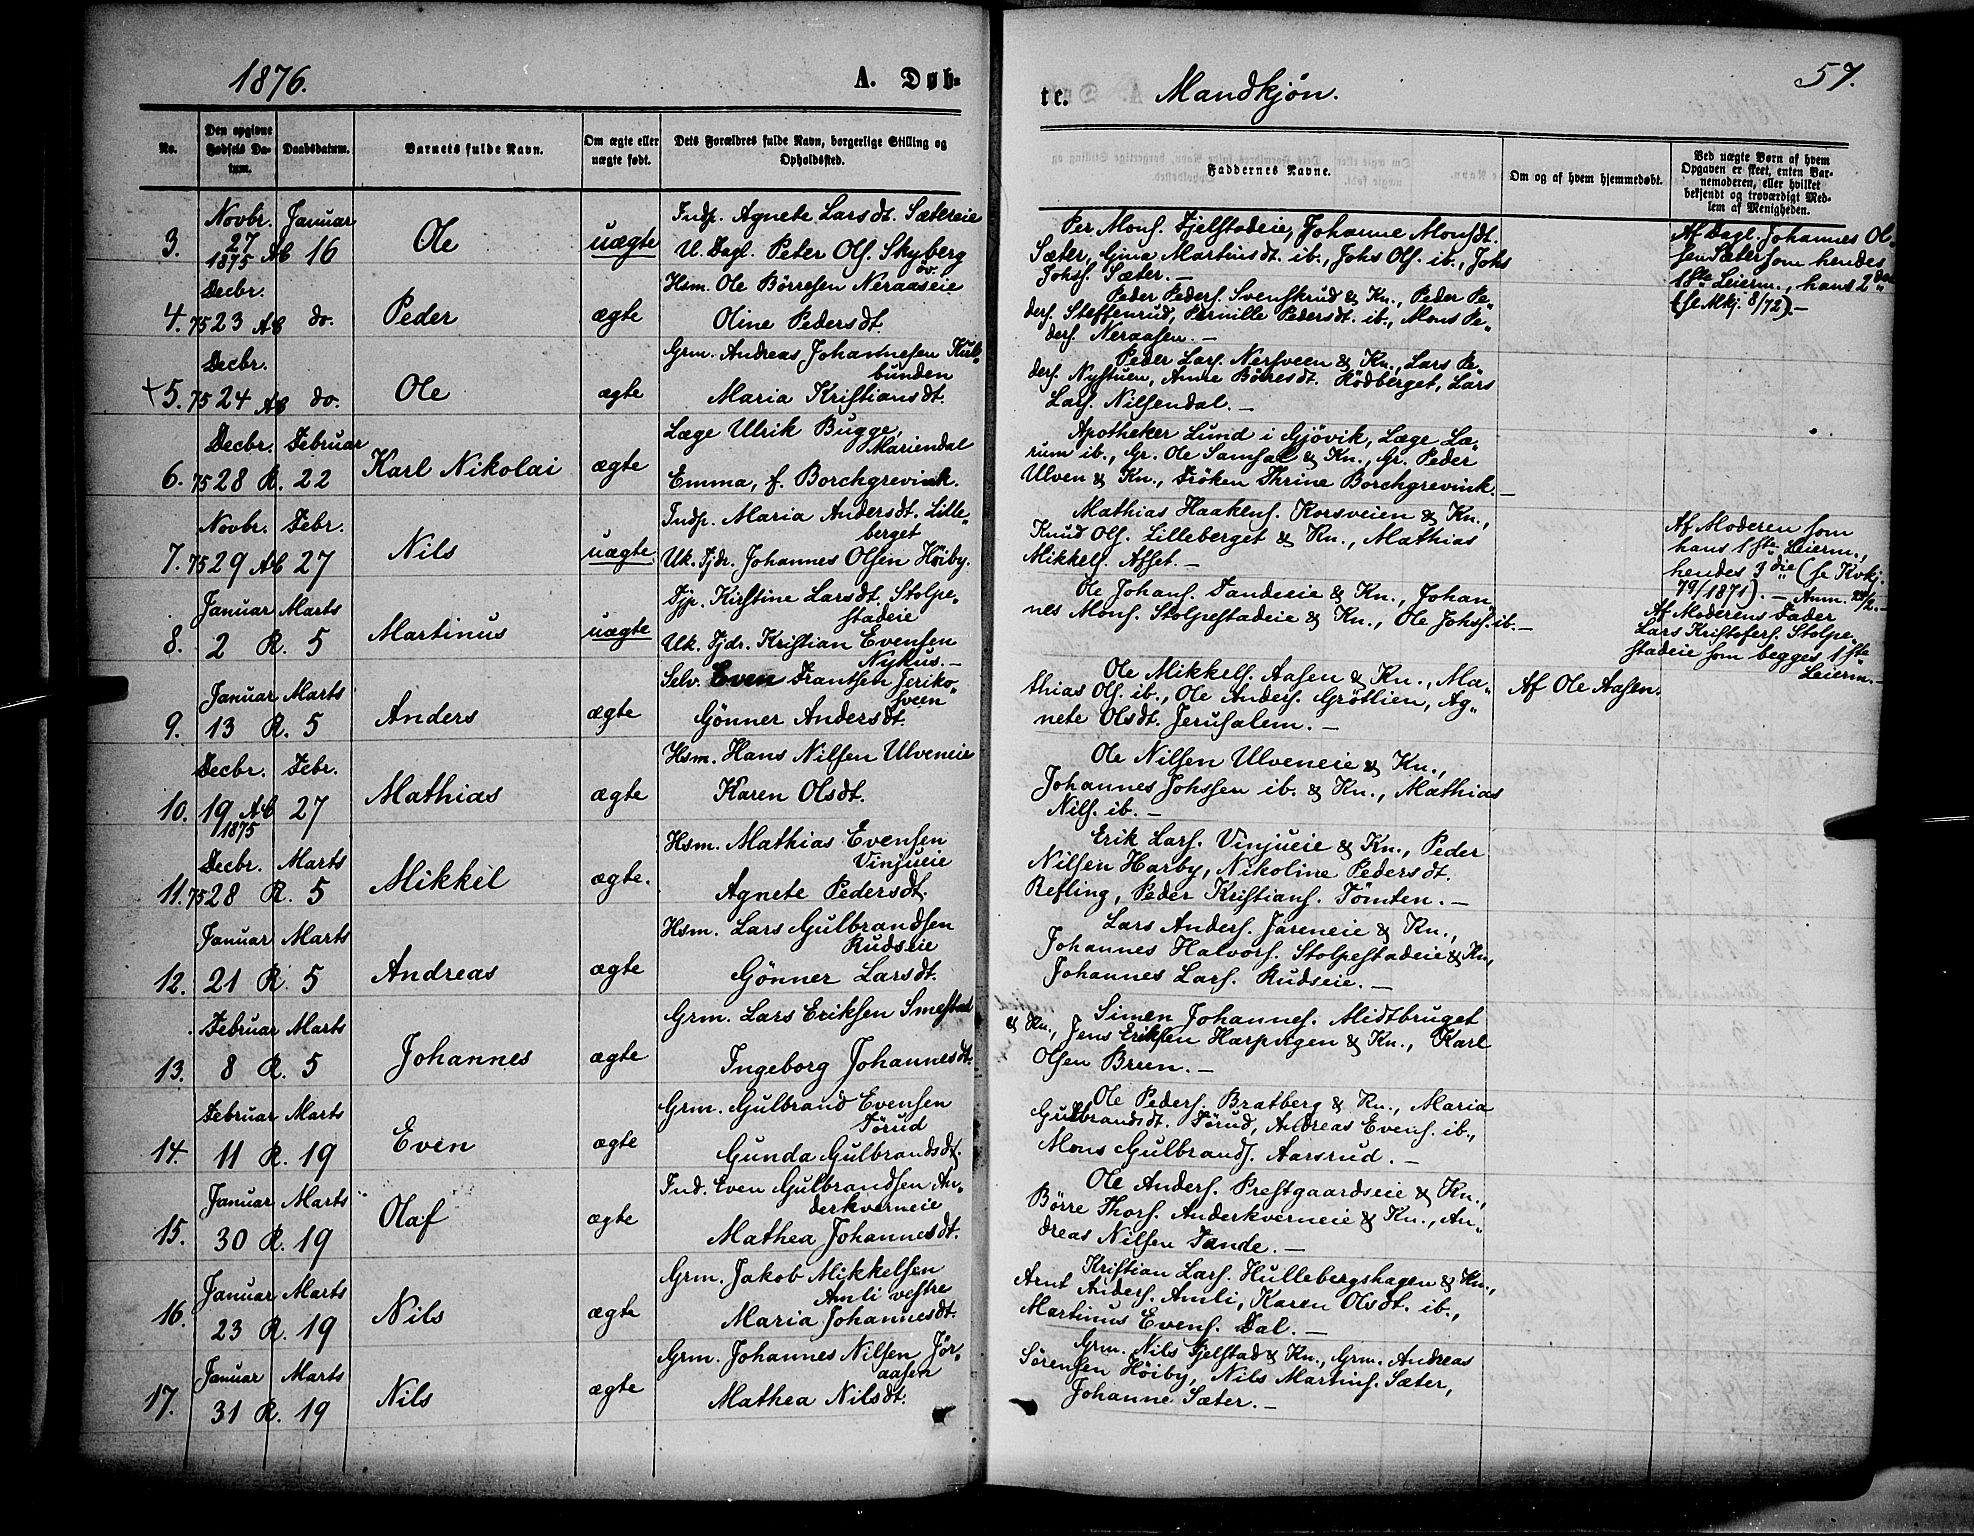 1876.
A. Døb-
te.
Mandkjön.
57.
No.
Den opgivne Fødsels Da-tum.
Daabsdatum.
Barnets fulde Navn.
Om ægte eller uægte født.
Dets Forældres fulde Navn, borgerlige Stilling og Opholdssted.
Faddernes Navne.
Om og af hvem hjemmedøbt.
Ved uægte Børn af hvem Opgaven er skeet, enten Bar-nemoderen, eller hvilket bekjendt og troværdigt Med-lem af Menigheden.
3.
Novbr. 27 1875 AB
Januar 16
Ole
uægte
Indp. Agnete Larsdt. Sætereie
U. Dagl. Peter Ols. Skyberg öv.
Per Mons. Fjelstadeie, Johanne Monsdt.
Sæter, Gina Martinsdt. ib., Johs Ols. ib., Johs
Johs. Sæter. —
Af Dagl. Johannes Ol-
sen Sæter som hendes
1ste Leierm., hans 2den
(se Mkj. 8/72). —
4.
Decbr. 75 23 AB
do.
Peder
ægte
Hsm. Ole Börresen Neraaseie
Oline Pedersdt.
Peder Peders. Svenskrud & Kn., Peder Pe-
ders. Steffenrud, Pernille Pedersdt. ib., Mons Pe-
ders. Neraasen. —
+5.
Decbr. 75 24 AB
do.
Ole
ægte
Grm. Andreas Johannesen Kul-
bunden
Maria Kristiansdt.
Peder Lars. Nersveen & Kn., Lars Pe-
ders. Nystuen, Anne Börresdt. Rödberget, Lars
Lars. Nilsendal. —
6.
Decbr. 75 28 R.
Februar 22
Karl Nikolai
ægte
Læge Ulrik Bugge,
Mariendal
Emma, f. Borchgrevink.
Apotheker Lund i Gjövik, Læge Læ-
rum ib., Gr. Ole Samsal & Kn., Gr. Peder
Ulven & Kn., Fröken Thrine Borchgrevink. —
7.
Novbr. 75 29 AB
Febr. 27
Nils
uægte
Indp. Maria Andersdt. Lille-
berget
Uk. Fjdr. Johannes Olsen Höiby.
Mathias Haakens. Korsveien & Kn.,
Knud Ols. Lilleberget & Kn., Mathias
Mikkels. Asset. —
Af Moderen som
hans 1ste Leierm.,
hendes 3die (se Kvkj.
79/1871). — Anm. 29/2. —
8.
Januar 2 R.
Marts 5
Martinus
uægte
Tjp. Kirstine Larsdt. Stolpe-
stadeie
Uk. Fjdr. Kristian Evensen
Nykus. —
Ole Johans. Tandeeie & Kn., Johan-
nes Mons. Stolpestadeie & Kn., Ole Johs. ib. —
Af Moderens Fader
Lars Kristofers. Stolpe-
stadeie som begges 1ste
Leierm. —
9.
Januar 13 R.
Marts 5
Anders
ægte
Selv. Even Frantsen Jeriko-
sveen
Gönner Andersdt.
Ole Mikkels. Aasen & Kn., Ma-
thias Ols. ib., Ole Anders. Grötlien, Ag-
nete Olsdt. Jerusalem. —
Af Ole Aasen.
10.
Decbr. 19 AB 1875
Febr. 27
Mathias
ægte
Hsm. Hans Nilsen Ulveneie
Karen Olsdt.
Ole Nilsen Ulveneie & Kn.,
Johannes Johssen ib. & Kn., Mathias
Nils. ib. —
11.
Decbr. 75 28 R.
Marts 5
Mikkel
ægte.
Hsm. Mathias Evensen
Vinjueie
Agnete Pedersdt.
Erik Lars. Vinjueie & Kn., Peder
Nilsen Harby, Nikoline Pedersdt.
Refling, Peder Kristians. Tömten. —
12.
Januar 21 R.
Marts 5
Andreas
ægte
Hsm. Lars Gulbrandsen
Rudseie
Gönner Larsdt.
Lars Anders. Jareneie & Kn.,
Johannes Halvors. Stolpestadeie & Kn.,
Johannes Lars. Rudseie. —
13.
Februar 8 R.
Marts 5
Johannes
ægte
Grm. Lars Eriksen Smestad
Ingeborg Johannesdt.
Simen Johannes. Midtbruget
& Kn., Jens Eriksen Harpvigen & Kn., Karl
Olsen Breen. —
14.
Februar 11 R.
Marts 19
Even
ægte
Grm. Gulbrand Evensen
Törud
Gunda Gulbrandsdt.
Ole Peders. Bratberg & Kn., Maria
Gulbrandsdt. Törud, Andreas Evens. ib.,
Mons Gulbrands. Aarsrud. —
15.
Januar 30 R.
Marts 19
Olaf
ægte
Ind. Even Gulbrandsen An-
derkverneie
Mathea Johannesdt.
Ole Anders. Prestgaardseie & Kn.,
Börre Thors. Anderkverneie & Kn., An-
dreas Nilsen Tande. —
16.
Januar 23 R.
Marts 19
Nils
ægte
Grm. Jakob Mikkelsen
Amli vestre
Maria Johannesdt.
Kristian Lars. Hullebergshagen & Kn.,
Arnt Anders. Amli, Karen Olsdt. ib.,
Martinus Evens. Dal. —
17.
Januar 31 R.
Marts 19
Nils
ægte
Grm. Johannes Nilsen Jör-
aasen
Mathea Nilsdt.
Grm. Nils Fjelstad & Kn., Grm. Andreas
Sörensen Höiby, Nils Martins. Sæter,
Johanne Sæter. —